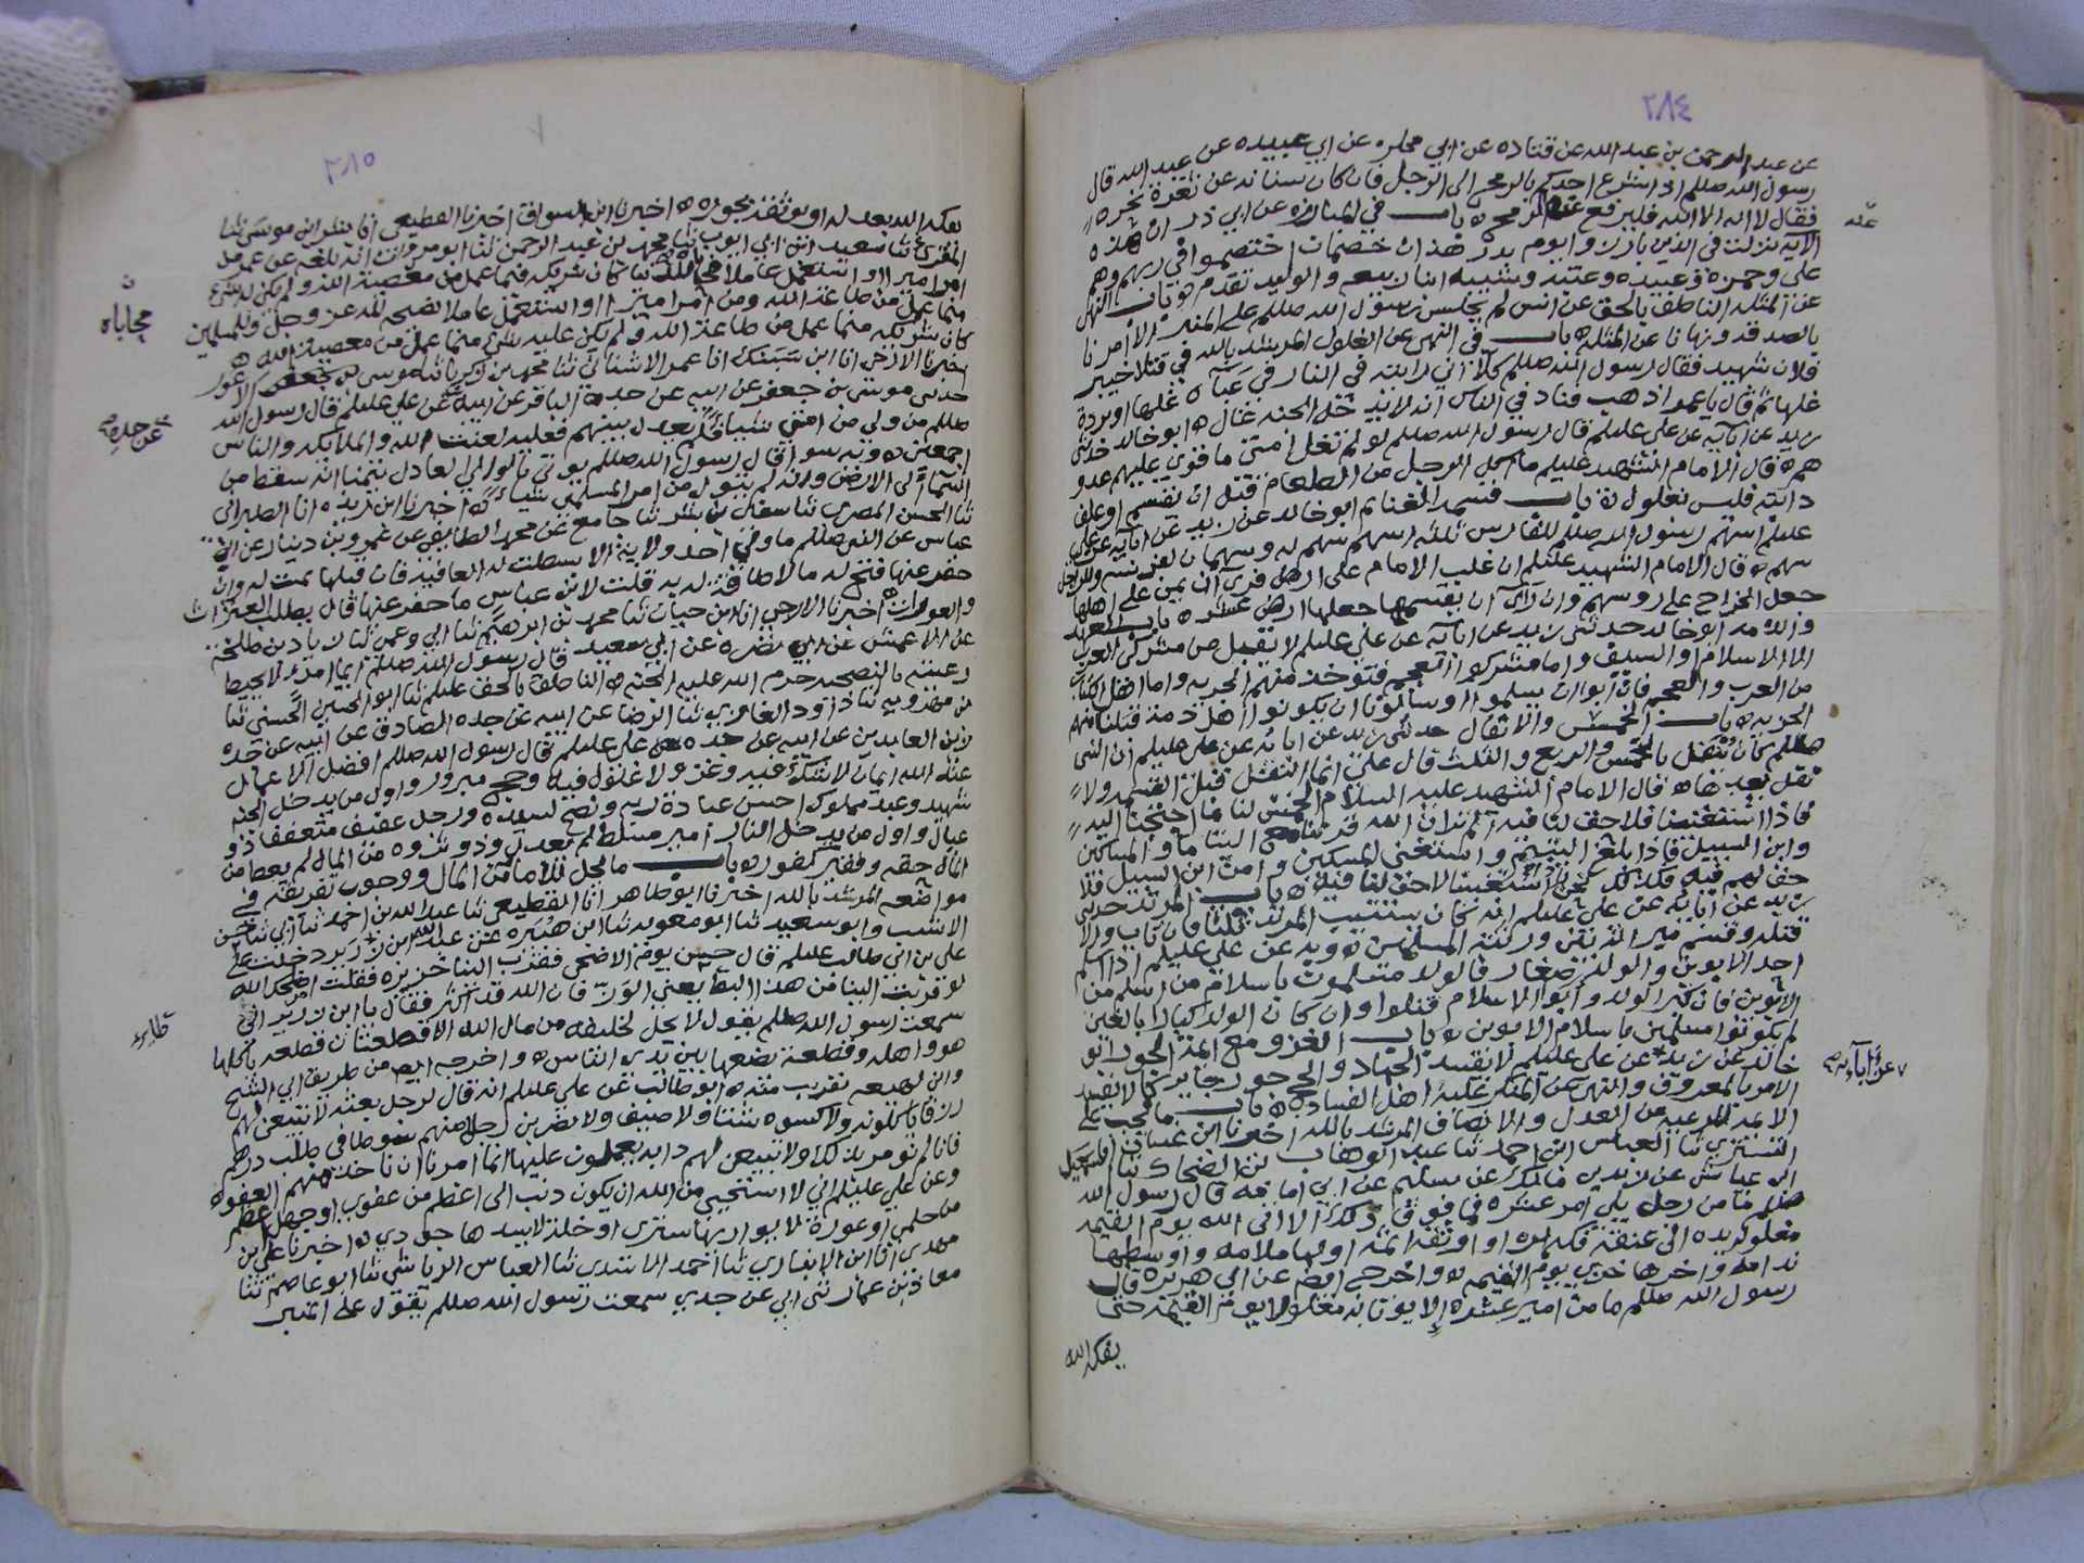 ٢٨٤
عن عبد الرحمن بن عبد الله عن قتاده عن ابي مجلز عن ابي عبيده عن عبد الله قال
رسول الله صللم اذا اشرع احدكم بالرمح الى الرجل فان كان سنانه عن ثغرة نحره
فقال لا اله الا الله فليرفع عنه الرمح ه باب في المبارزه عن ابي ذر ان هذه
عنه
الايه نزلت في الذين بارزوا يوم بدر هذان خصمان اختصموا في ربهم وهم
علي وحمزه وعبيده وعتبه وشيبه ابنا ربيعه والوليد تقدم ه باب النهي
عن المثله الناطق بالحق عن انس لم يجلس رسول الله صللم على المنبر الا امرنا
بالصدقه ونهانا عن المثله ه باب في النهي عن الغلول المرشد بالله في قتلا خيبر
فلان شهيد فقال رسول الله صللم كلا اني رايته في النار في عباة غلها او بردة
غلها ثم قال يا عمر اذهب فناد في الناس انه لا يدخل الجنه غال ه ابو خالد حدثني
زيد عن ابآيه عن علي عليلم قال رسول الله صللم لو لم تغل امتي ما قوي عليهم عدو
لهم ه قال الامام الشهيد عليلم ما اكل الرجل من الطعام قبل ان يقسم او علف
دابته فليس بغلول ه باب قسمه الغنايم ابو خالد عن زيد عن ابآيه عن علي
عليلم اسهم رسول الله صللم للفارس ثلثه اسهم سهم له وسهمان لفرسه وللراجل
سهم ه قال الامام الشهيد عليلم ان غلب الامام على ارض فرأى ان يمن على اهلها
جعل الخراج على روسهم وان رأى ان يقسمها جعلها ارض عشر ه باب العهد
والذمه ابو خالد حدثني زيد عن ابآيه عن علي عليلم لا يقبل من مشركي العرب
الا الاسلام او السيف واما مشركوا العجم فتوخذ منهم الجزيه واما اهل الكتاب
من العرب والعجم فان ابوا ان يسلموا وسألونا ان يكونوا اهل ذمه قبلنا منهم
الجزيه ه باب الخمس والانفال حدثني زيد عن ابآيه عن علي عليلم ان النبي
صللم كان ينفل بالخمس والربع والثلث قال علي انما النفل قبل القسمه ولا
نفل بعدها ه قال الامام الشهيد عليه السلام الخمس لنا ما احتجنا اليه
فاذا استغنينا فلا حق لنا فيه الم تر ان الله قرننا مع اليتاما والمساكين
وابن السبيل فاذا بلغ اليتيم واستغنى المسكين وامن ابن السبيل فلا
حق لهم فيه فكذلك نحن اذا استغنينا لا حق لنا فيه ه باب المرتد حدثني
زيد عن ابآيه عن علي عليلم انه كان يستتيب المرتد ثلثا فان تاب والا
قتله وقسم ميراثه بين ورثته المسلمين ه وبه عن علي عليلم اذا اسلم
احد الابوين والولد صغار فالولد مسلمون باسلام من اسلم من
الابوين فان كبر الولد وابوا الاسلام قتلوا وان كان الولد كبارا بالغين
لم يكونوا مسلمين باسلام الابوين ه باب الغزو مع ايمة الجور ابو
خالد عن زيد عن علي عليلم لا يفسد الجهاد والحج جور جاير كما لا يفسد
عن آبآيه صح
الامر بالمعروف والنهي عن المنكر غلبة اهل الفساد ه باب ما يجب على
الايمه للرعيه من العدل والانصاف المرشد بالله اخبرنا ابن غسان
التستري ثنا العباس ابن احمد ثنا عبد الوهاب بن الضحاك ثنا اسمعيل
ابن عياش عن يزيد بن مالك عن سليم عن ابي امامه قال رسول الله
صللم ما من رجل يلي امر عشره فما فوق ذلك الا اتى الله يوم القيمه
مغلولة يده الى عنقه فكه بره او اوثقه اثمه اولها ملامه واوسطها
ندامه واخرها خزي يوم القيمه ه واخرج ايضا عن ابي هريره قال
رسول الله صللم ما من امير عشره الا يوتا به مغلولا يوم القيمه حتى
يفكه الله
٢٨٥
يفكه الله بعدله او يوثقه بجوره ه اخبرنا ابن السواق اخبرنا القطيعي انا بشر ابن موسى ثنا
المقري ثنا سعيد ابن ابي ايوب ثنا محمد بن عبد الرحمن ثنا ابو مرزوق انه بلغه عن عمر من
امر اميرا او استعمل عاملا محاباة لذلك كان شريكه فيما عمل من معصية الله ولم يكن له شي
محاباه ن
مما عمل من طاعة الله ومن امر اميرا او استعمل عاملا لنصحه لله عز وجل وللمسلمين
كان شريكه فيما عمل من طاعة الله ولم يكن عليه شي مما عمل من معصية الله ه
اخبرنا الازجي انا ابن سبنك انا عمر الاشناني ثنا محمد بن زكريا ثنا موسى بن جعفر الاعور
حدثني موسى بن جعفر عن ابيه عن جده الباقر عن ابيه عن علي عليلم قال رسول الله
عن جده صح
صللم من ولي من امتي شيئا فلم يعدل بينهم فعليه لعنت الله والملايكه والناس
اجمعين ه وبه سوا قال رسول الله صللم يوتى بالوالي العادل يتمنا انه سقط من
السمآ الى الارض وانه لم يتول من امر المسلمين شيئا ه اخبرنا ابن ريذه انا الطبراني
ثنا الحسن المصري ثنا سفين بن بشر ثنا جامع عن محمد الطايفي عن عمرو بن دينار عن ابن
عباس عن النبي صللم ما ولي احد ولاية الا بسطت له العافيه فان قبلها تمت له وان
حفر عنها فتح له ما لا طاقة له به قلت لابن عباس ما حفر عنها قال يطلب العثرات
والعورات ه اخبرنا الازجي انا ابن حيان ثنا محمد بن ابرهيم ثنا ابي وعمي ثنا زياد بن طلحة
عن الاعمش عن ابي نضره عن ابي سعيد قال رسول الله صللم ايما امرء لا يحيط
رعيته بالنصيحه حرم الله عليه الجنه ه الناطق بالحق عليلم ثنا ابو الحسين الحسني ثنا
بن مهرويه ثنا داود الغازي ثنا الرضا عن ابيه عن جده الصادق عن ابيه عن جده
زين العابدين عن ابيه عن جده علي عليلم قال رسول الله صللم افضل الاعمال
عند الله ايمان لا شك فيه وغزو لا غلول فيه وحج مبرور واول من يدخل الجنه
شهيد وعبد مملوك احسن عبادة ربه ونصح لسيده ورجل عفيف متعفف ذو
عيال واول من يدخل النار امير مسلط لم يعدل وذو ثروه من المال لم يعط من
المال حقه وفقير كفور ه باب ما يحل للامام من المال ووجوب تفريقه في
مواضعه المرشد بالله اخبرنا ابو طاهر انا القطيعي ثنا عبد الله بن احمد ثنا ابي ثنا حسن
الاشيب وابو سعيد ثنا ابو معويه ثنا ابن هبيره عن عبد الله ابن زرير دخلت على
علي بن ابي طالب عليلم قال حسن يوم الاضحى فقرب الينا خزيره فقلت اصلحك الله
لو قربت الينا من هذا البط يعني الوز فان الله قد اكثر فقال يا ابن زرير اني
ظاهر
سمعت رسول الله صللم يقول لا يحل لخليفه من مال الله الا قصعتان قصعه ياكلها
هو واهله وقصعة يضعها بين يدي الناس ه واخرجه ايضا من طريق ابي الشيخ
وابن لهيعه بقريب منه ه ابو طالب عن علي عليلم انه قال لرجل بعثه لا تبيعن لهم
رزقا ياكلونه ولا كسوه شتا ولا صيف ولا تضربن رجلا منهم سوطا في طلب درهم
فانا لم نومر بذلك ولا تبيعن لهم دابه يعملون عليها انما امرنا ان ناخذ منهم العفو ه
وعن علي عليلم اني لا استحيي من الله ان يكون ذنب الى اعظم من عفوي او جهل اعظم
من حلمي او عورة لا يواريها ستري او خلة لا يسدها جودي ه اخبرنا علي بن
مهدي انا ابن الانباري ثنا احمد الاسدي ثنا العباس الرياشي ثنا ابو عاصم ثنا
معاذ بن عمار ثني ابي عن جدي سمعت رسول الله صللم يقول على المنبر